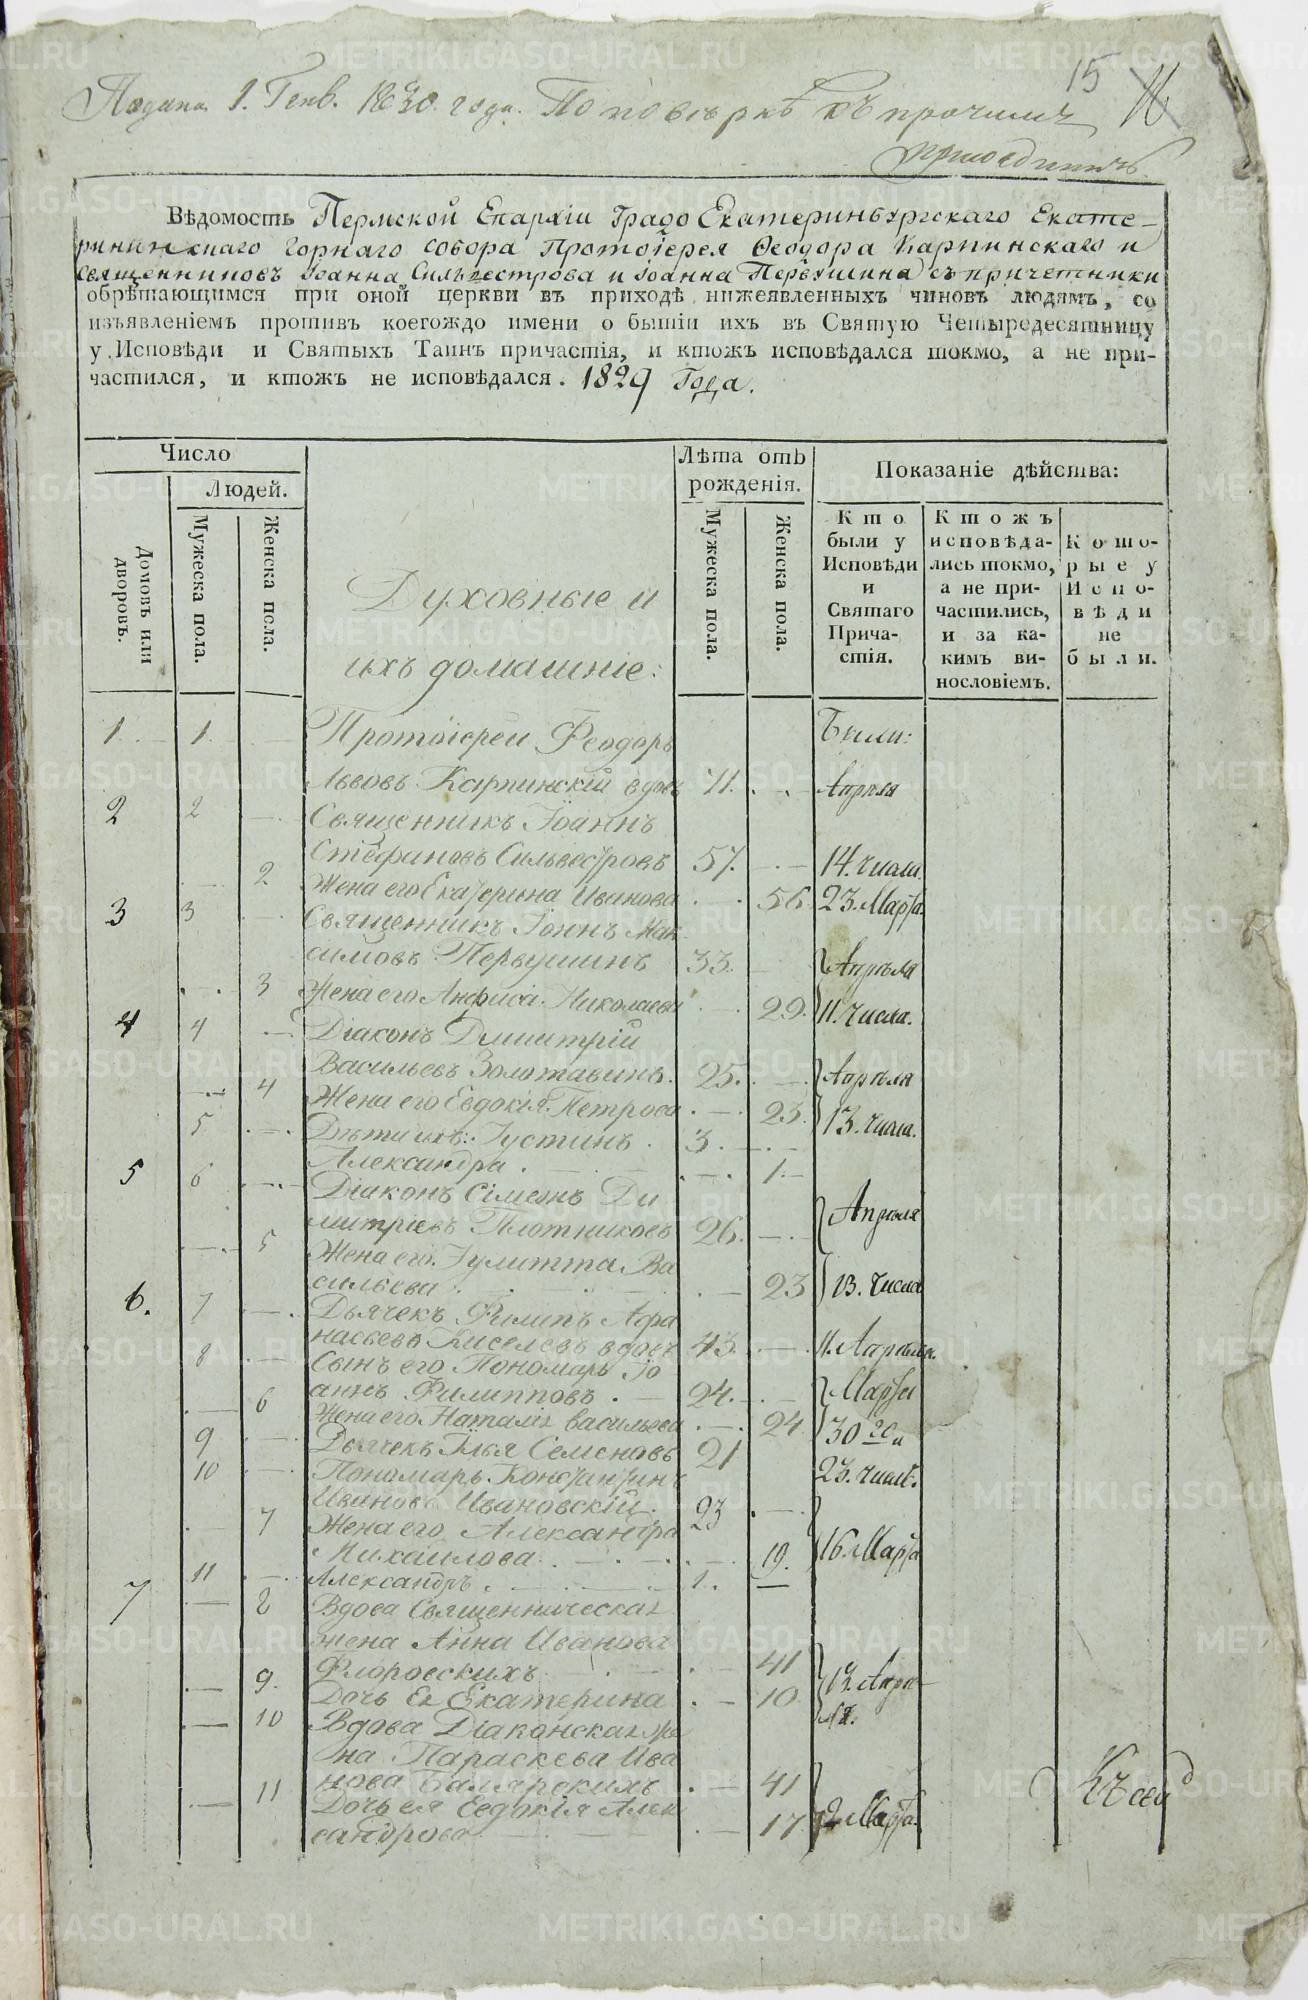 Подана 9. Генв. 1830. года. По повѣркѣ къ прочимъ
приобщить
15
Вѣдомость Пермской Епархіи Градо Екатеринбургскаго Екате-
рининскаго Горнаго собора Протоіерея Ѳеодора Карпинскаго и
священниковъ Іоанна Сильвестрова и Іоанна Первушина съ причетники
обрѣтающимся при оной церкви въ приходѣ нижеявленныхъ чиновъ людямъ, со
изъявленіемъ противъ коегождо имени о бытіи ихъ въ Святую Четыредесятницу
у Исповѣди и Святыхъ Таинъ причастія, и ктожъ исповѣдался токмо, а не при-
частился, и ктожъ не исповѣдался. 1829 Года.
Число
Людей.
Домовъ или дворовъ.
Мужеска пола.
Женска пола.
Духовные и
ихъ домашніе:
Лѣта отъ
рожденія.
Мужеска пола.
Женска пола.
Показаніе дѣйства:
Кто
были у
Исповѣди
и
Святаго
Прича-
стія.
Ктожъ
исповѣда-
лись токмо,
а не при-
частились,
и за ка-
кимъ ви-
нословіемъ.
Кото-
рые у
Испо-
вѣди
не
были.
1 1 Протоіерей Ѳеодоръ Были:
Львовъ Карпинскій вдовъ 71. Апрѣля
2 2 Священникъ Іоаннъ
Стефановъ Сильвестровъ 57. 14. числа
2 Жена его Екатерина Иванова 56. 23. Марта
3 3 Священникъ Іоннъ Мак
симовъ Первушинъ 33. Апрѣля
3 Жена его Анфиса Николаева 29. 11. числа.
4 4 Діаконъ Дмитрій
Васильевъ Золотавинъ. 25. Апрѣля
4 Жена его Евдокія Петрова 23. 13. числа.
5 Дѣти ихъ: Іустинъ. 3.
Александра. 1.
5 6 Діаконъ Сімеонъ Ди
митріевъ Плотниковъ 26. Апрѣля
5 Жена его Іулитта Ва
сильева 23 13. числа
6. 7 Дьячекъ Филипъ Афа
насьевъ Киселевъ вдовъ 43. 11. Апрѣля.
8 Сынъ его Пономарь Іо
аннъ Филипповъ. 24. Марта
6 Жена его Наталія Васильева 24 30 го и
9 Дьячекъ Илья Семеновъ 21 23. числѣ.
10 Пономарь Константинъ
Ивановъ Ивановскій. 23
7 Жена его Александра
Михайлова. 19. 16. Марта
11 Александръ. 1.
7 8 Вдова Священническая
жена Анна Иванова
Флоровскихъ 41
9. Дочь Ея Екатерина 10 Апрѣ-
ля.
10 Вдова Діаконская же
на Параскева Ива
нова Балярскихъ 41
11 Дочь ея Евдокія Алек
сандрова 17 2 Марта.
Къ сей